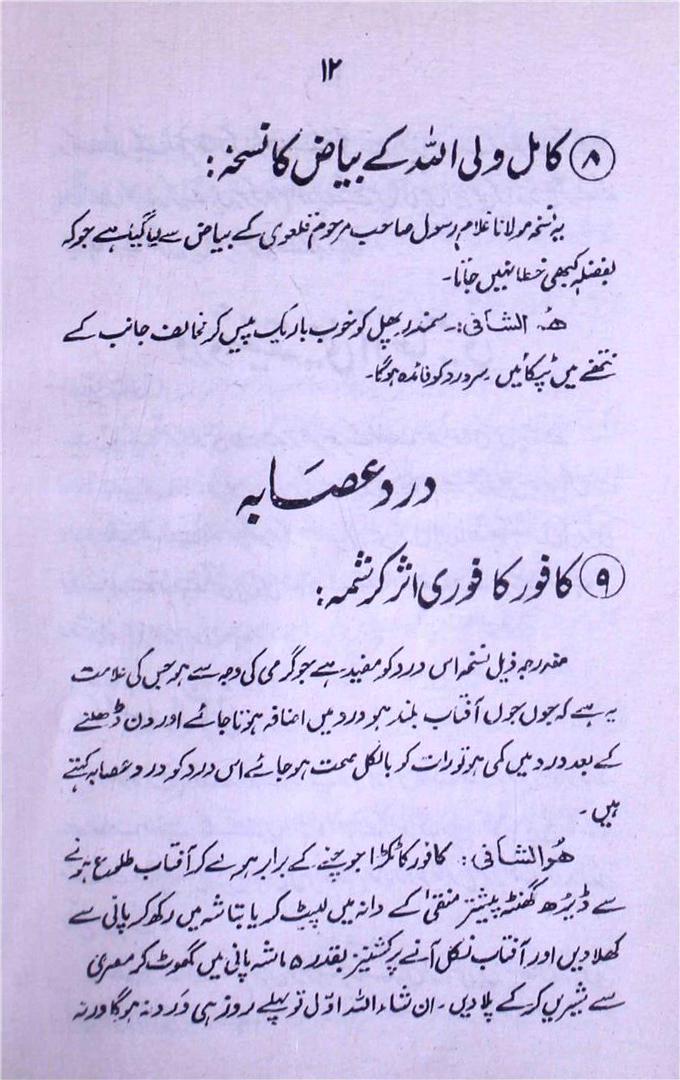 ۱۲
⑧ کامل ولی اللہ کے بیاض کا نسخہ:
یہ نسخہ مولانا غلام رسول صاحب مرحوم قلعوی کے بیاض سے لیا گیا ہے جو کہ
بفضلہٖ کبھی خطا نہیں جاتا۔
ھُو الشافی:۔ سمندر پھل کو خوب باریک پیس کر مخالف جانب کے
نتھنے میں ٹپکائیں سردرد کو فائدہ ہوگا۔
درد عصَابہ
⑨ کافور کا فوری اثر کرشمہ:
مندرجہ ذیل نسخہ اس درد کو مفید ہے جو گرمی کی وجہ سے ہو جس کی علامت
یہ ہے کہ جوں جوں آفتاب بلند ہو درد میں اضافہ ہوتا جائے اور دن ڈھلنے
کے بعد درد میں کمی ہو تو رات کو بالکل صحت ہو جائے اس درد کو درد عصابہ کہتے
ہیں۔
ھُوالشافی: کافور کا ٹکڑا جو چنے کے برابر ہو لے کر آفتاب طلوع ہونے
سے ڈیڑھ گھنٹہ پیشتر منقیٰ کے دانہ میں لپیٹ کر یا بتاشہ میں رکھ کر پانی سے
کھلا دیں اور آفتاب نکل آنے پر کشنیز بقدر ۵ ماشہ پانی میں گھوٹ کر مصری
سے شیریں کر کے پلا دیں۔ ان شاء اللہ اوّل تو پہلے روز ہی دَرد نہ ہوگا ورنہ